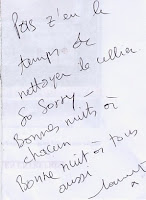 Pas z'eu le
temps de
nettoyer le cellier.
So Sorry -
Bonnes nuits à
chacun
Bonne nuit à tous
aussi